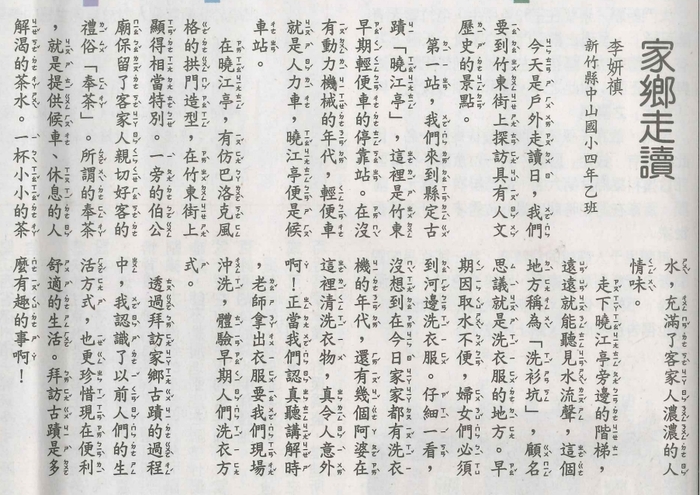 家鄉走讀
李妍禛
新竹縣中山國小四年乙班
今天是戶外走讀日，我們
要到竹東街上探訪具有人文
歷史的景點。
第一站，我們來到縣定古
蹟「曉江亭」，這裡是竹東
早期輕便車的停靠站。在沒
有動力機械的年代，輕便車
就是人力車，曉江亭便是候
車站。
在曉江亭，有仿巴洛克風
格的拱門造型，在竹東街上
顯得相當特別。一旁的伯公
廟保留了客家人親切好客的
禮俗「奉茶」。所謂的奉茶
，就是提供候車、休息的人
解渴的茶水。一杯小小的茶
水，充滿了客家人濃濃的人
情味。
走下曉江亭旁邊的階梯，
遠遠就能聽見水流聲，這個
地方稱為「洗衫坑」，顧名
思議就是洗衣服的地方。早
期因取水不便，婦女們必須
到河邊洗衣服。仔細一看，
沒想到在今日家家都有洗衣
機的年代，還有幾個阿婆在
這裡清洗衣物，真令人意外
啊！正當我們認真聽講解時
，老師拿出衣服要我們現場
沖洗，體驗早期人們洗衣方
式。
透過拜訪家鄉古蹟的過程
中，我認識了以前人們的生
活方式，也更珍惜現在便利
舒適的生活。拜訪古蹟是多
麼有趣的事啊！